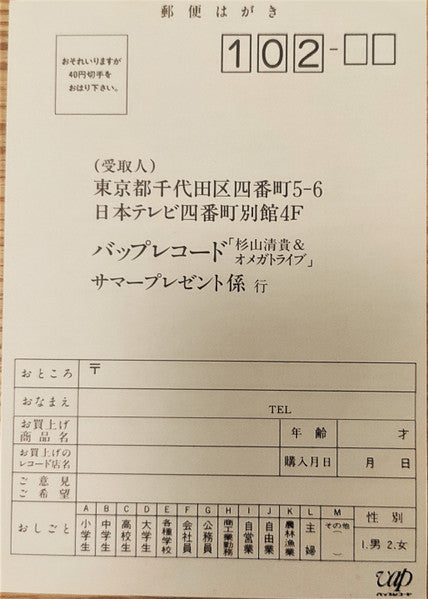 郵便はがき
おそれいりますが
40円切手を
おはり下さい。
102-
(受取人)
東京都千代田区四番町5-6
日本テレビ四番町別館4F
バップレコード「杉山清貴&
オメガトライブ」
サマープレゼント係 行
おところ 〒
おなまえ TEL
お買上げ
商品名
年齢 才
お買上げの
レコード店名
購入月日 月 日
ご意見
ご希望
おしごと
A 小学生
B 中学生
C 高校生
D 大学生
E 各種学校
F 会社員
G 公務員
H 商工業勤務
I 自営業
J 自由業
K 農林漁業
L 主婦
M その他( )
性別
1.男 2.女
vap
バップレコード